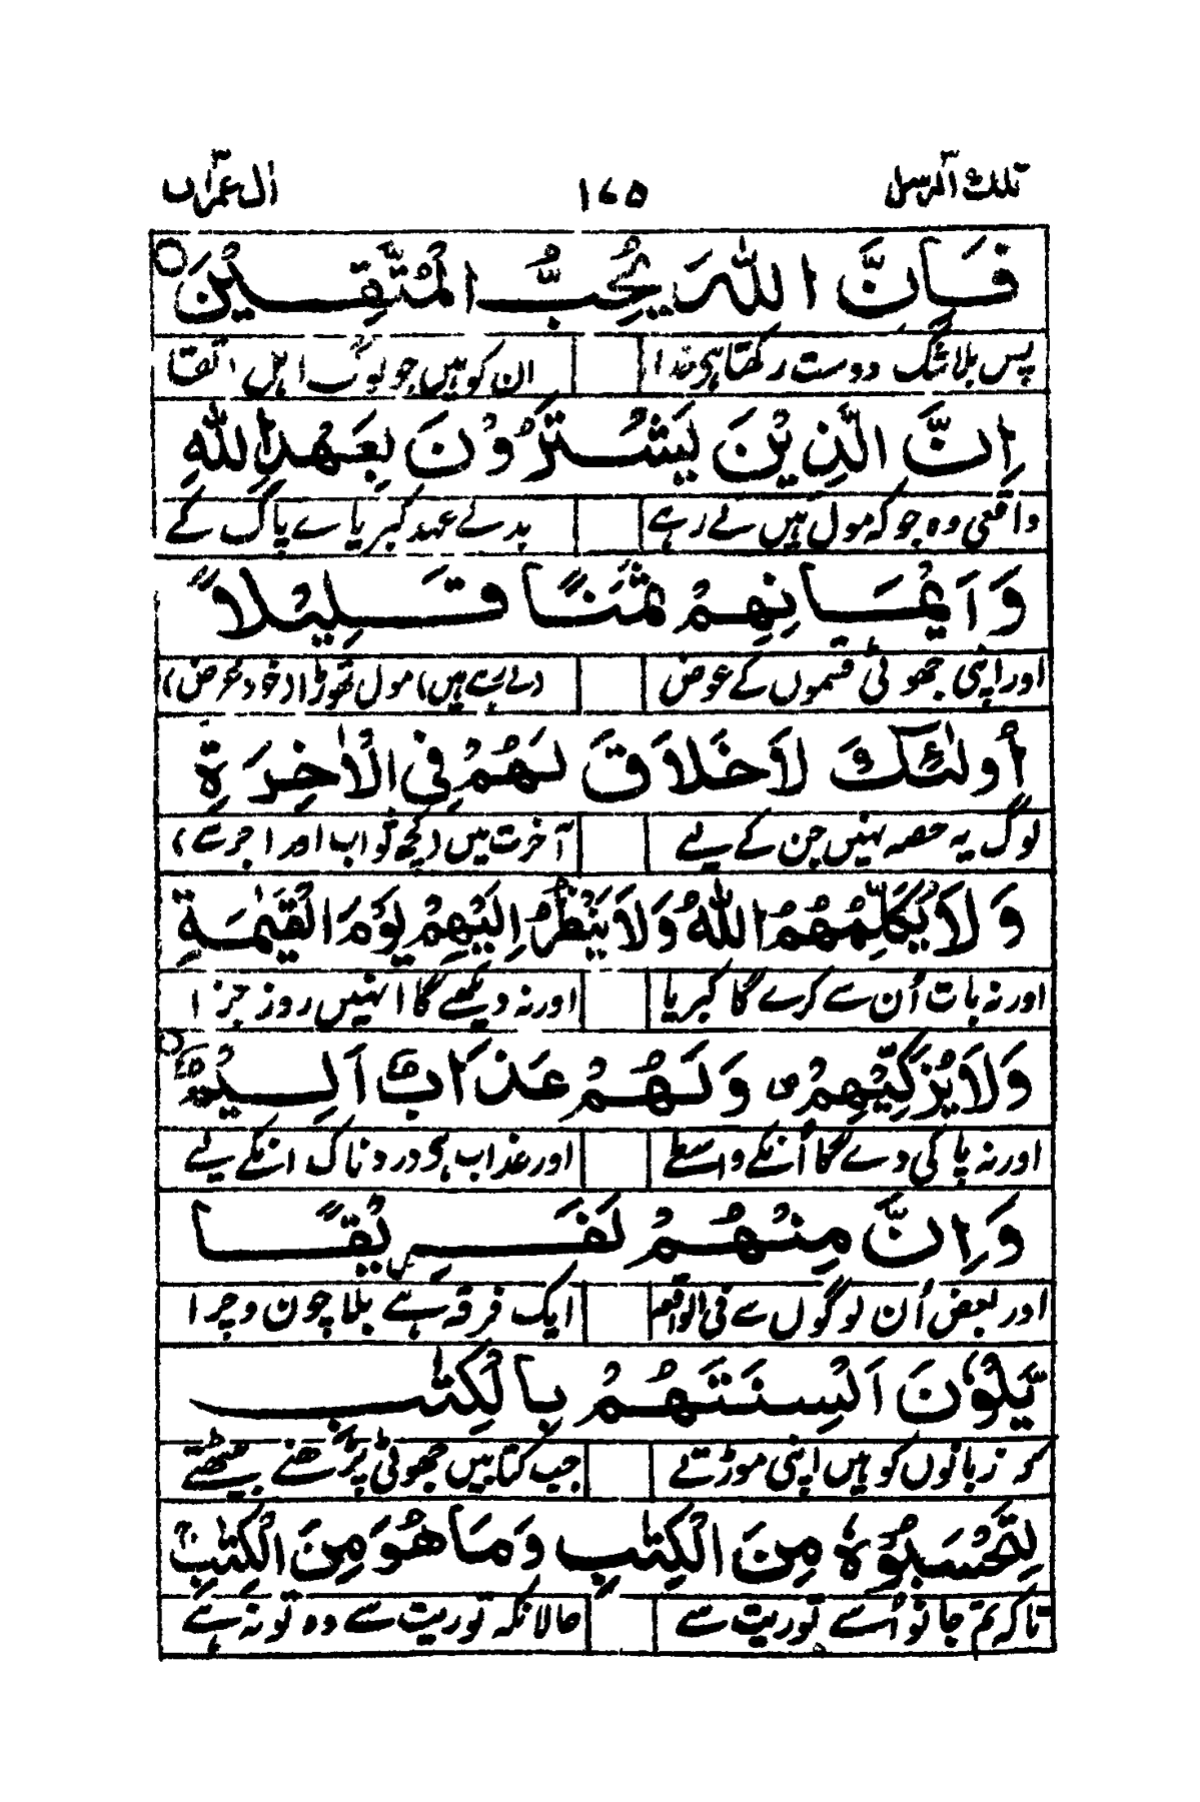 تلك الرسل ۳ ۱۷۵ اٰل عمراٰن ۳
فَاِنَّ اللّٰهَ يُحِبُّ الْمُتَّقِيْنَ ○
پس بلاشک دوست رکھتا ہی خدا ان کو ہیں جو لوگ اہل اتقا
اِنَّ الَّذِيْنَ يَشْتَرُوْنَ بِعَهْدِ اللّٰهِ
واقعی وہ جو کہ مول ہیں لے رہے بدلے عہد کبریاے پاک کے
وَاَيْمَانِهِمْ ثَمَنًا قَلِيْلًا
اور اپنی جھوٹی قسموں کے عوض (لے رہے ہیں) مول تھوڑا (خود غرض)
اُولٰٓئِكَ لَاخَلَاقَ لَهُمْ فِى الْاٰخِرَةِ
لوگ یہ حصہ نہیں جن کے لیے آخرت میں (کچھ ثواب اور اجر سے)
وَلَايُكَلِّمُهُمُ اللّٰهُ وَلَايَنْظُرُ اِلَيْهِمْ يَوْمَ الْقِيٰمَةِ
اور نہ بات اُن سے کرے گا کبریا اور نہ دیکھے گا انہیں روز جزا
وَلَايُزَكِّيْهِمْ ص وَلَهُمْ عَذَابٌ اَلِيْمٌ ○
اور نہ پاکی دے گا اُنکے واسطے اور عذاب ہی دردناک انکے لیے
وَاِنَّ مِنْهُمْ لَفَرِيْقًا
اور بعض اُن لوگوں سے فی الواقعہ ایک فرقہ ہے بلا چون وچرا
يَّلْوٗنَ اَلْسِنَتَهُمْ بِالْكِتٰبِ
کہ زبانوں کو ہیں اپنی موڑتے جب کتابیں جھوٹی پڑھنے بیٹھتے
لِتَحْسَبُوْهُ مِنَ الْكِتٰبِ وَمَاهُوَ مِنَ الْكِتٰبِ
تاکہ تم جانو اُسے توریت سے حالانکہ توریت سے وہ تو نہ ہے